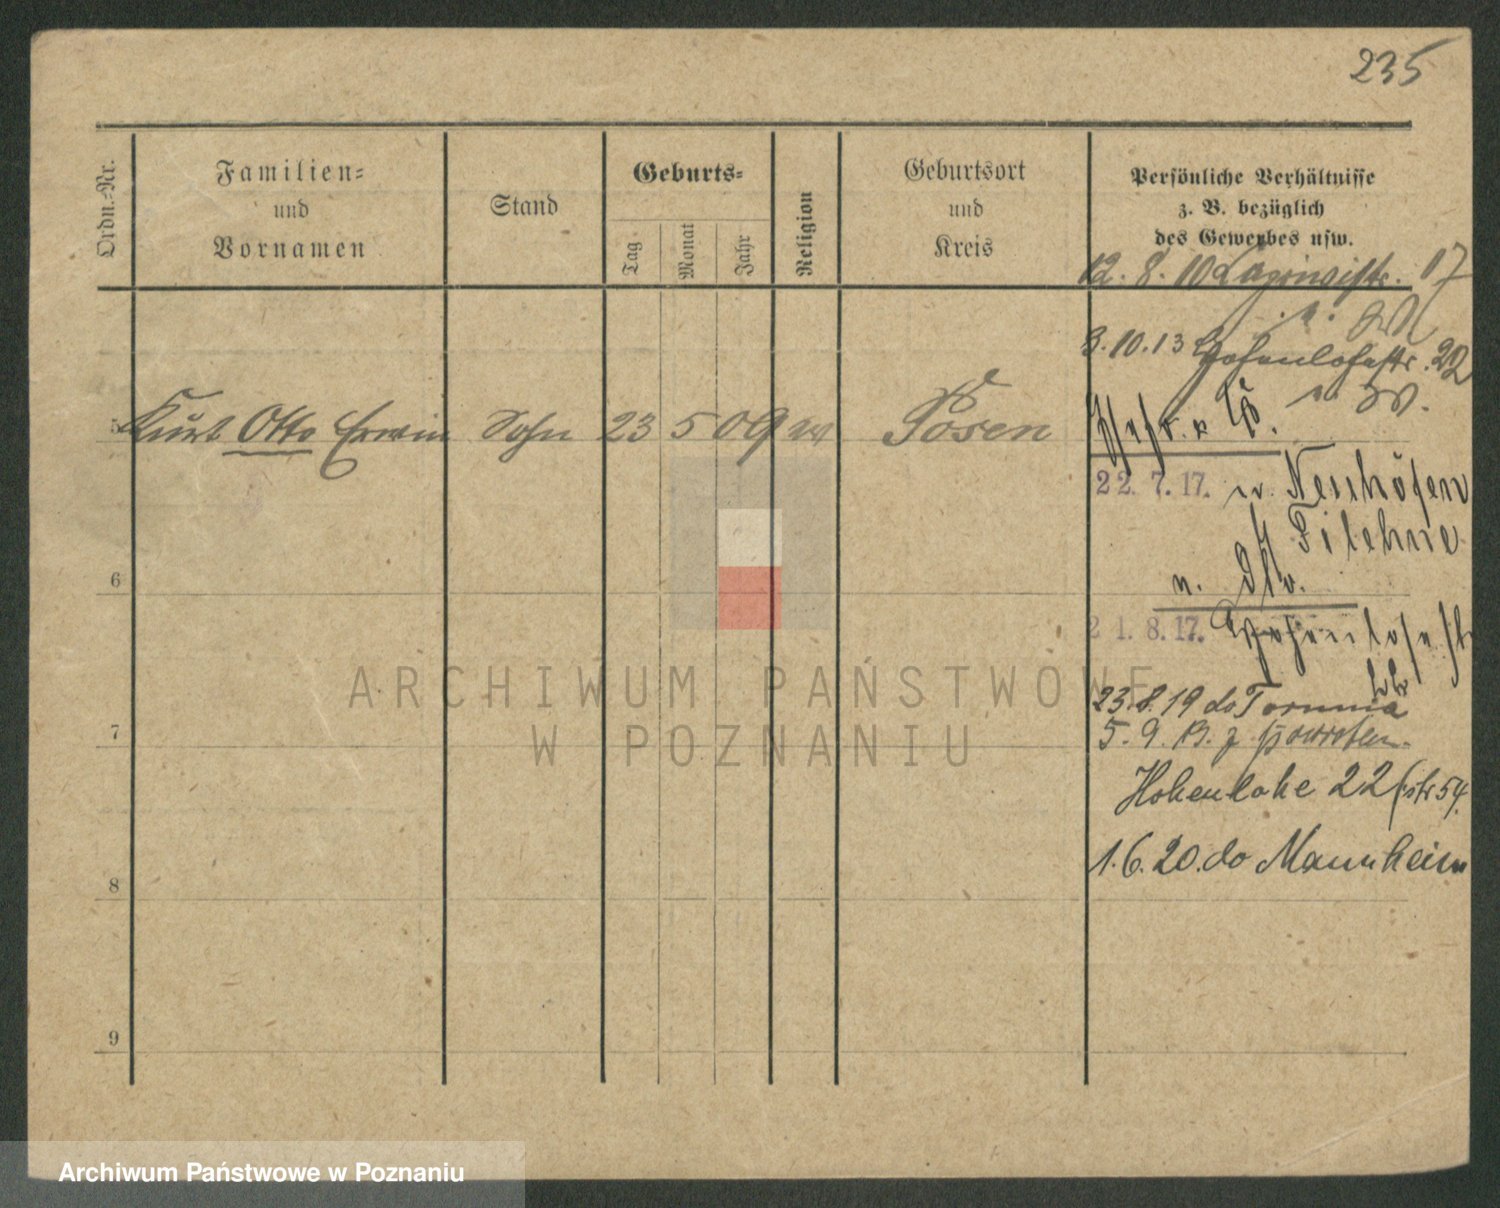 235
Ordn.-Nr.
Familien-
und
Vornamen
Stand
Geburts-
Tag
Monat
Jahr
Religion
Geburtsort
und
Kreis
Persönliche Verhältnisse
z. B. bezüglich
des Gewerbes usw.
12. 8. 10 17
3.10.13 Hohenlohestr. 22
5 Kurt Otto Erwin Sohn 23 5 09 ev Posen
22. 7. 17. Neuhöfen
Filehne
21. 8. 17. Hohenlohestr
6
23.8.19 do Torunia
5. 9.
7
Hohenlohe 22
1.6.20. do Mannheim
8
9
ARCHIWUM PAŃSTWOWE
W POZNANIU
Archiwum Państwowe w Poznaniu